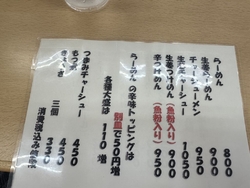 らーめん 800
生姜らーめん 900
チャーシューメン 1050
生姜チャーシュー
生姜つけめん（魚粉入り） 900
辛つけめん（魚粉入り） 950
らーめんの辛味トッピングは
別皿で50円増
各種大盛は 110 増
つまみチャーシュー 450
もつ煮 450
ぎょうざ 三個 330
消費税込み